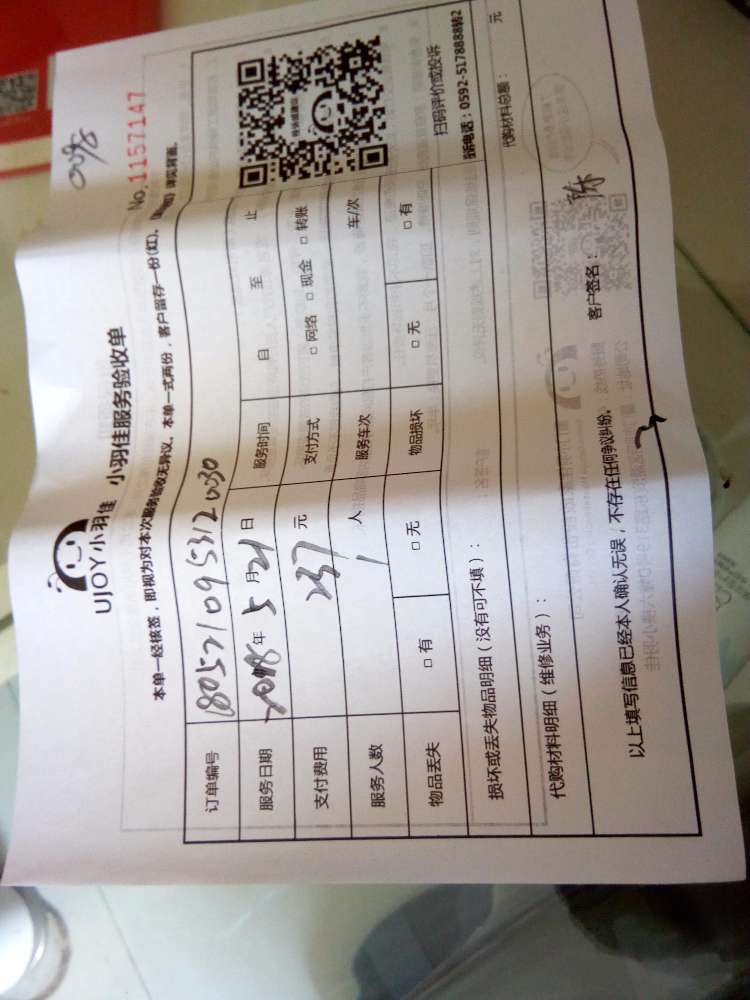 0098
UJOY小羽佳 小羽佳服务验收单
No.1157147
本单一经核签，即视为对本次服务验收无异议。本单一式两份，客户留存一份(红)。 详见背面。
订单编号 180521095312030
服务日期 2018年 5月21日 服务时间 自 至 止
支付费用 237 元 支付方式 □网络 □现金 □转账
服务人数 1 人 服务车次 车/次
物品丢失 □有 □无 物品损坏 □无 □有
扫码评价或投诉
电话：0592-5178888转2
损坏或丢失物品明细（没有可不填）：
代购材料明细（维修业务）： 代购材料总额： 元
以上填写信息已经本人确认无误，不存在任何争议纠纷。 客户签名： 陈